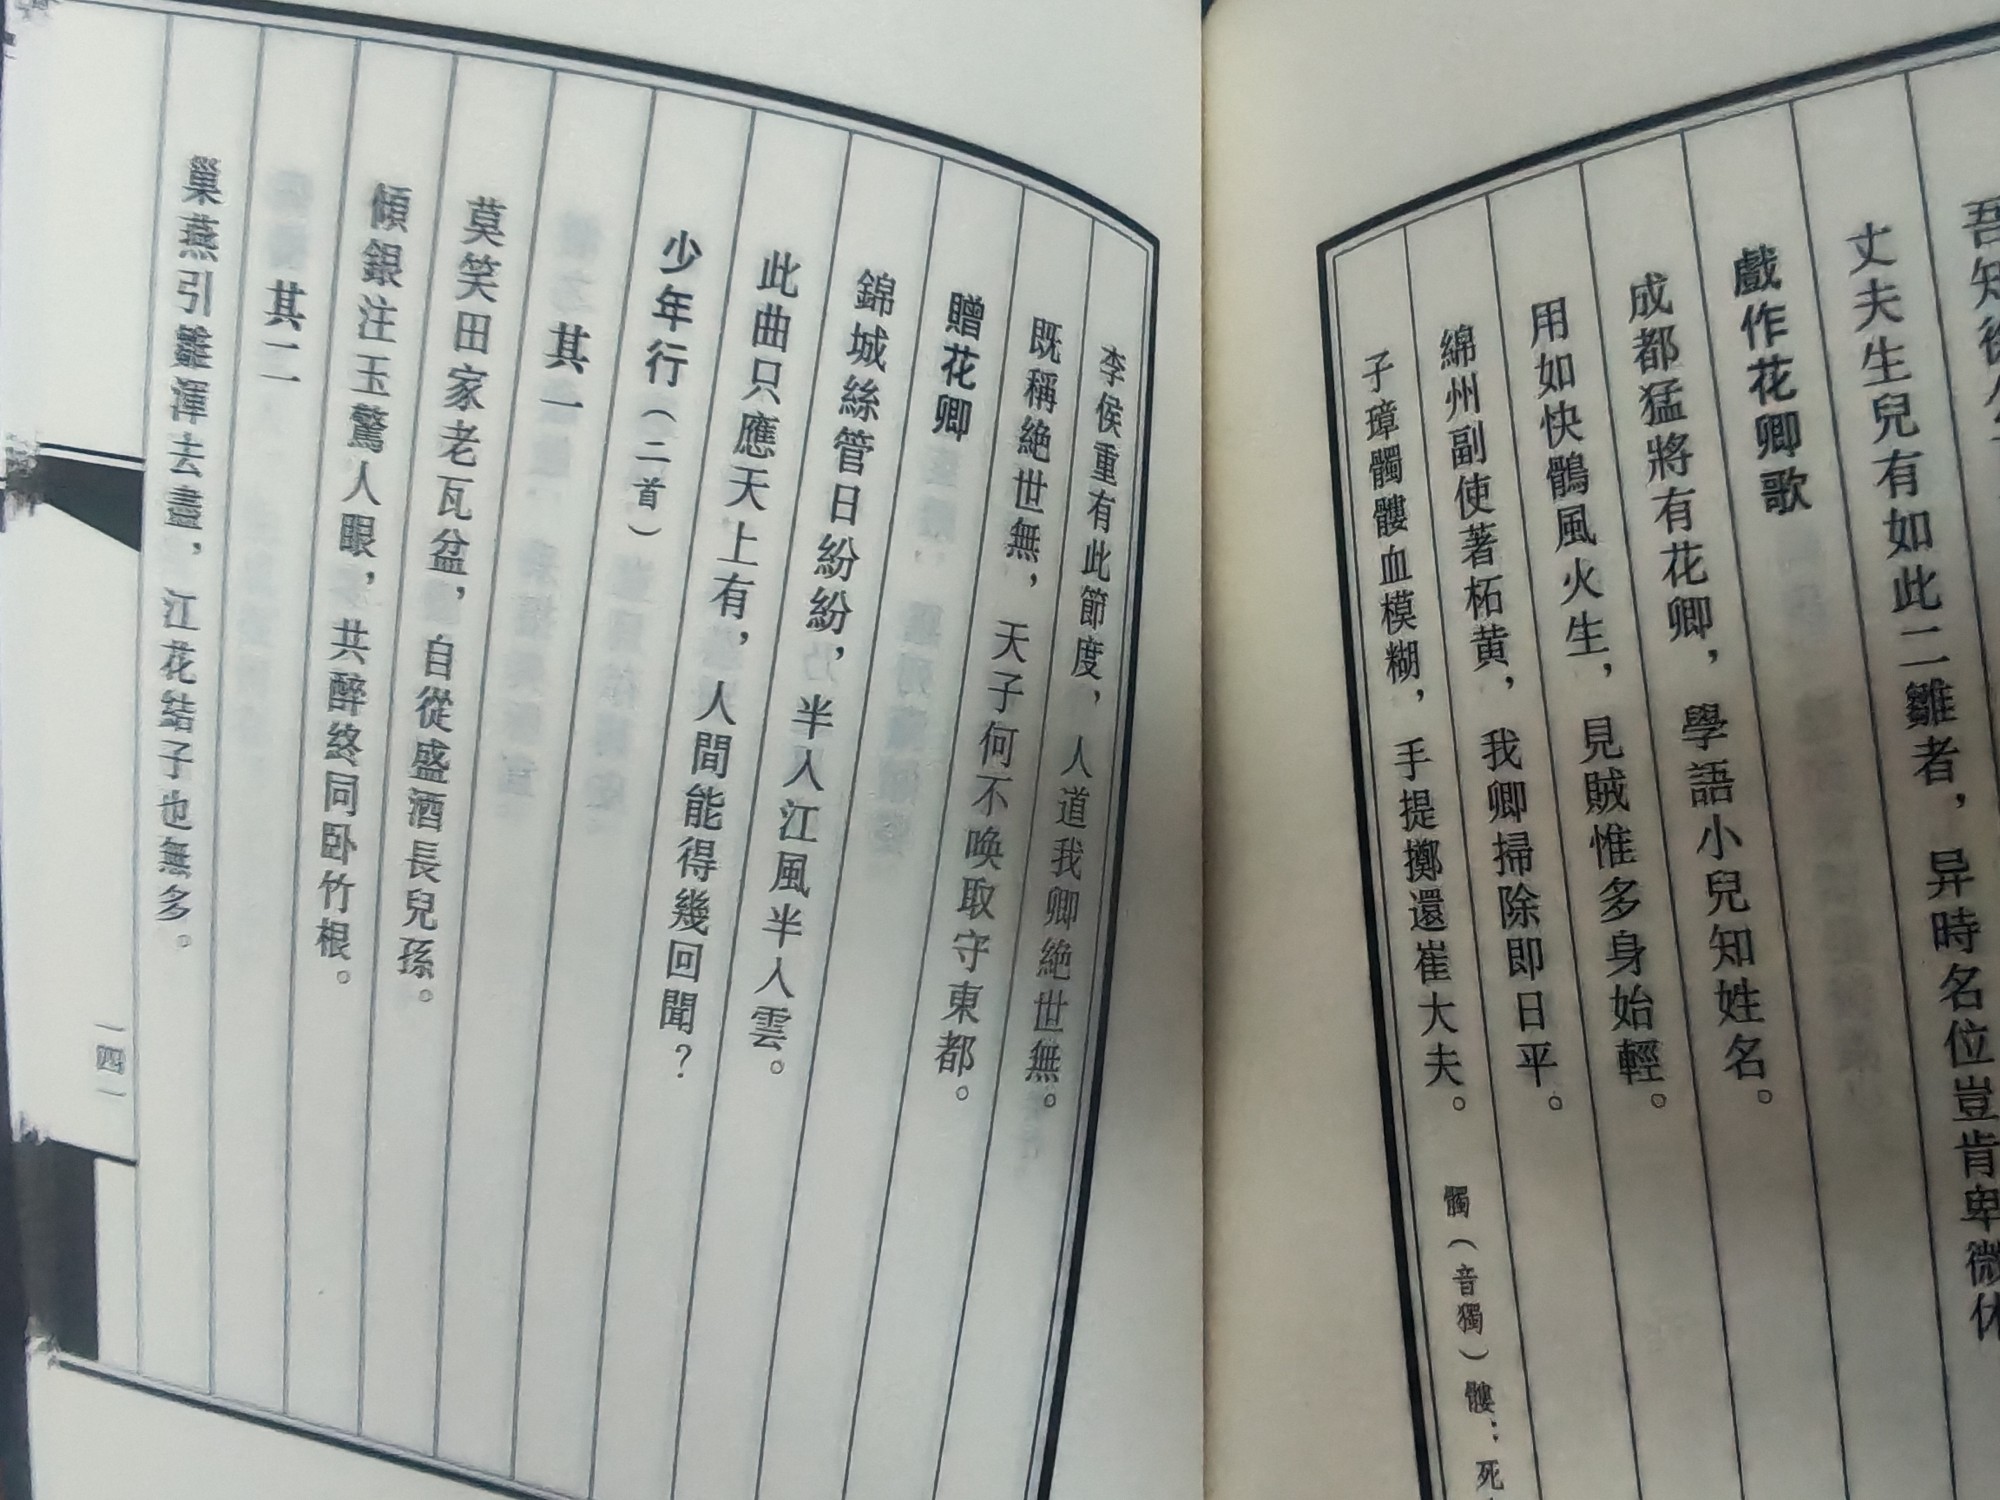 吾知徐公
丈夫生兒有如此二雛者，异時名位豈肯卑微休
戲作花卿歌
成都猛將有花卿，學語小兒知姓名。
用如快鶻風火生，見賊惟多身始輕。
綿州副使著柘黄，我卿掃除即日平。
子璋髑髏血模糊，手提擲還崔大夫。 髑（音獨）髏：死
李侯重有此節度，人道我卿絶世無。
既稱絶世無，天子何不唤取守東都。
贈花卿
錦城絲管日紛紛，半入江風半入雲。
此曲只應天上有，人間能得幾回聞？
少年行（二首）
其一
莫笑田家老瓦盆，自從盛酒長兒孫。
傾銀注玉驚人眼，共醉終同卧竹根。
其二
巢燕引雛渾去盡，江花結子也無多。
一四一